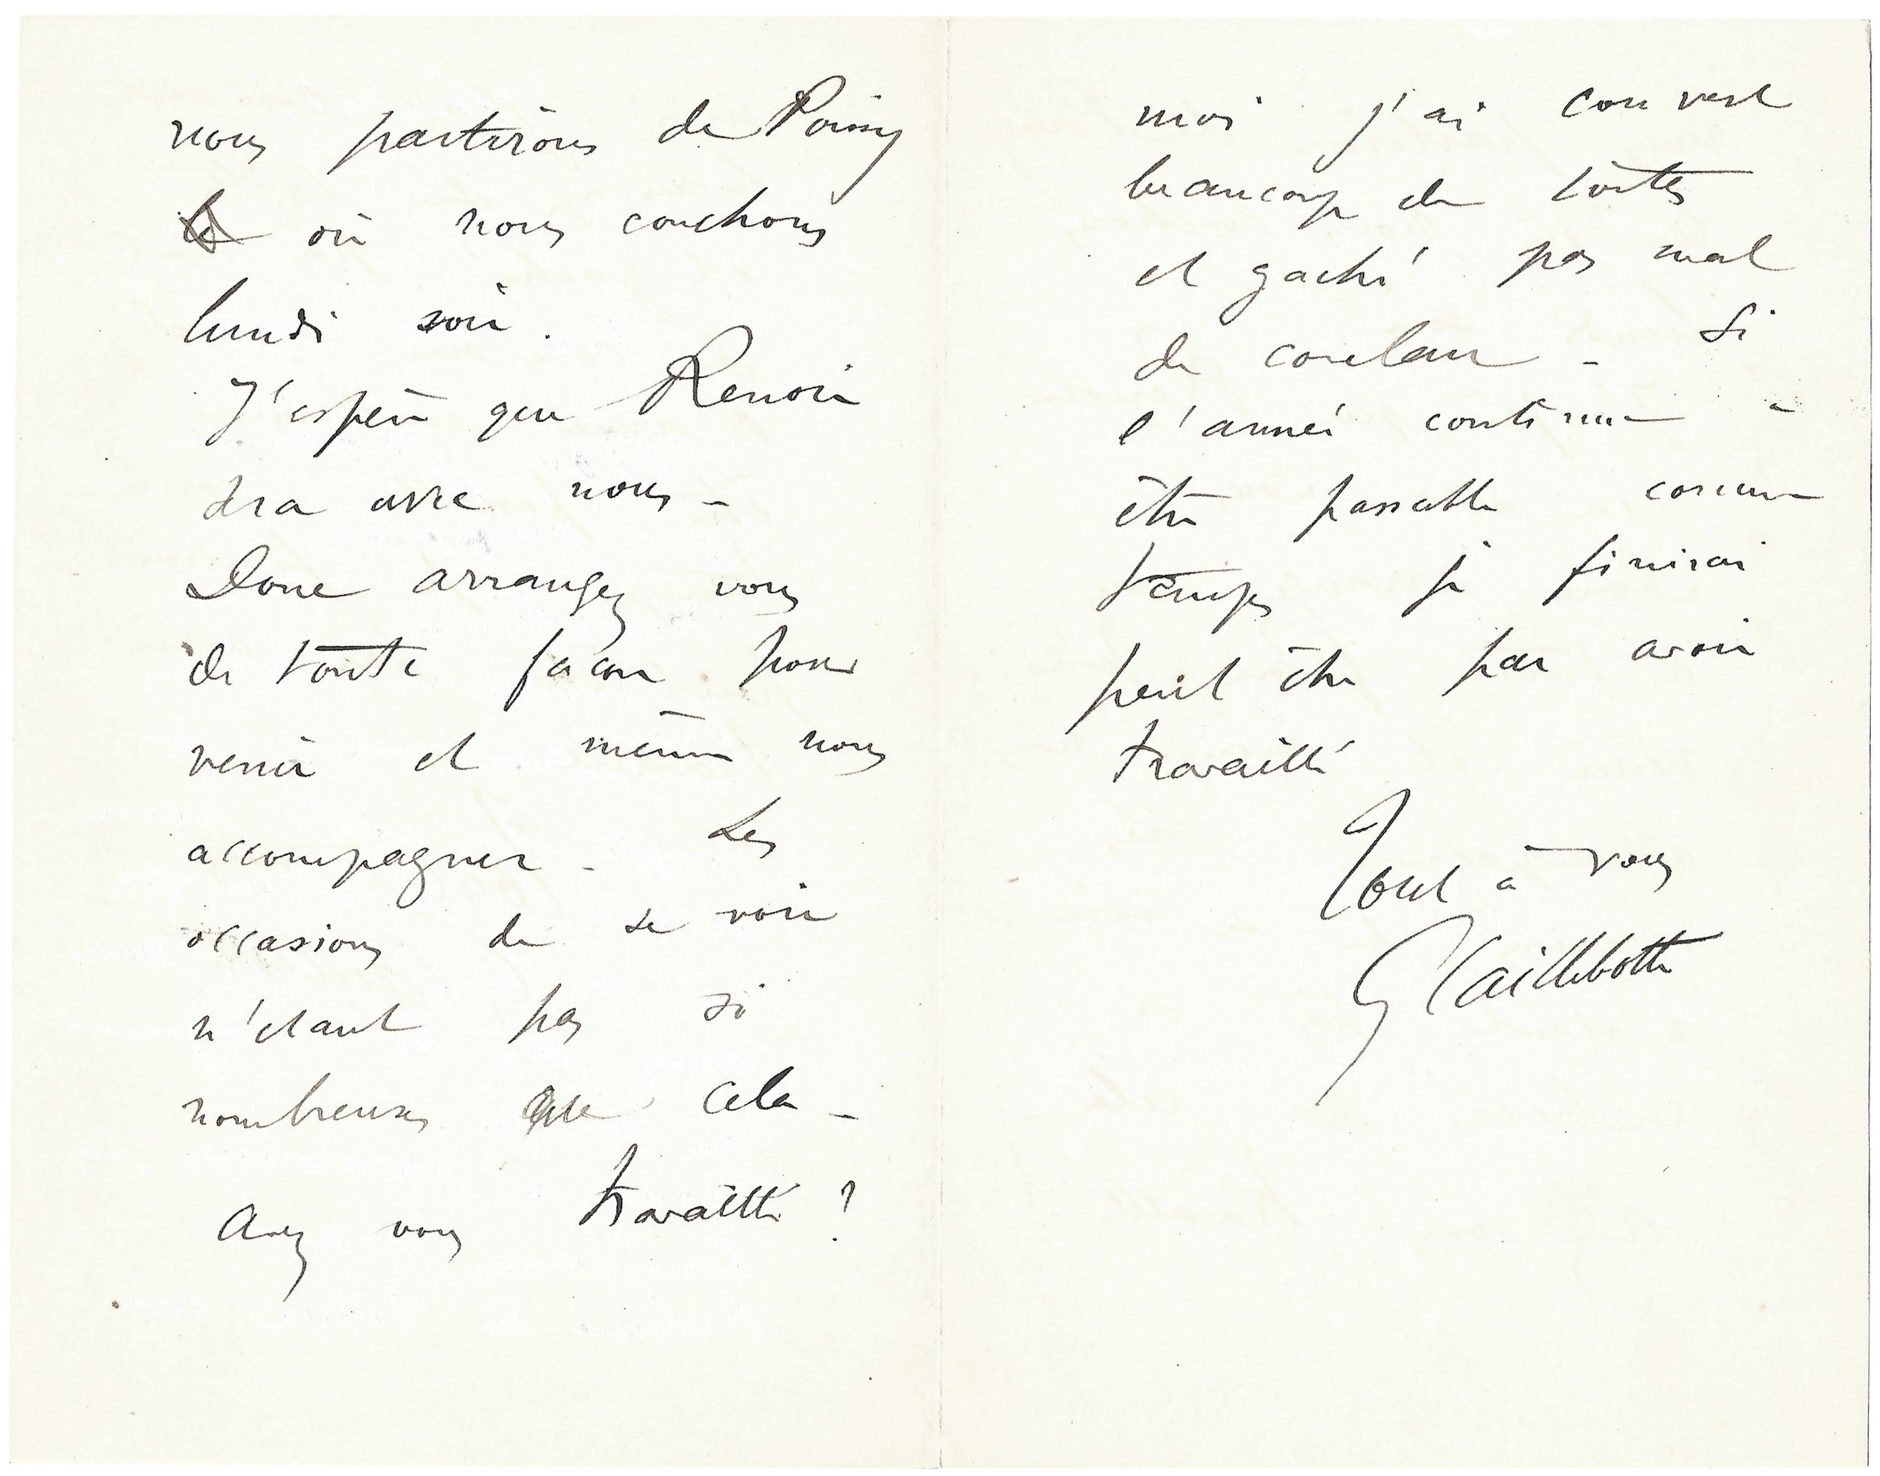 nous partirons de Poissy
où nous couchons
lundi soir.
J'espère que Renoir
dra avec nous –
Donc arrangez vous
de toute façon pour
venir et même nous
accompagner – Les
occasions de se voir
n'étant pas si
nombreuses que cela –
Avez vous travaillé ?
moi j'ai couvert
beaucoup de toiles
et gaché pas mal
de couleur – Si
l'année continue à
être passable comme
temps je finirai
peut être par avoir
travaillé
Tout à vous
G Caillebotte